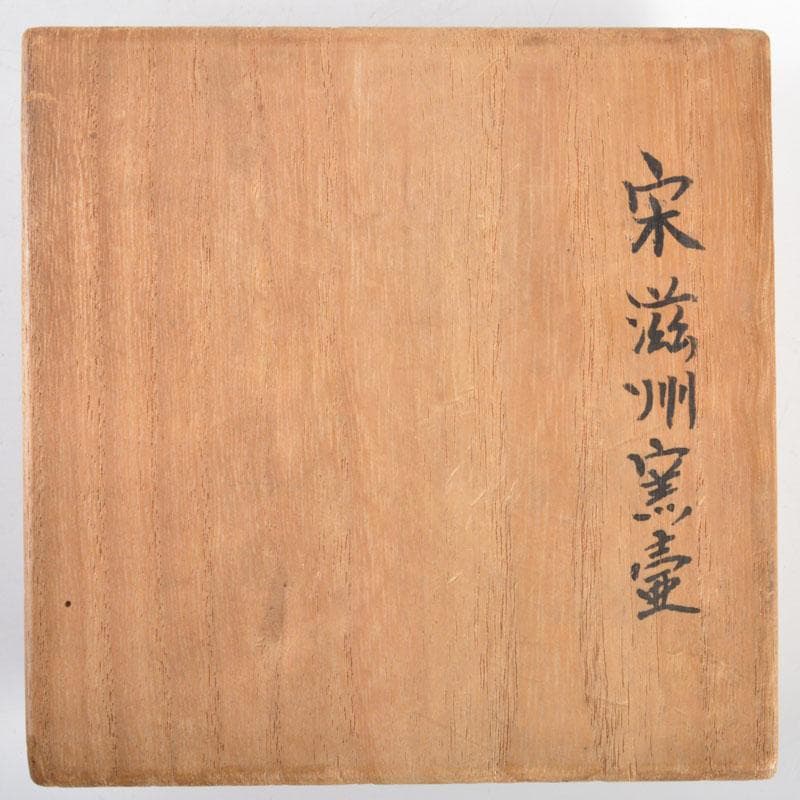 宋滋州窯壷